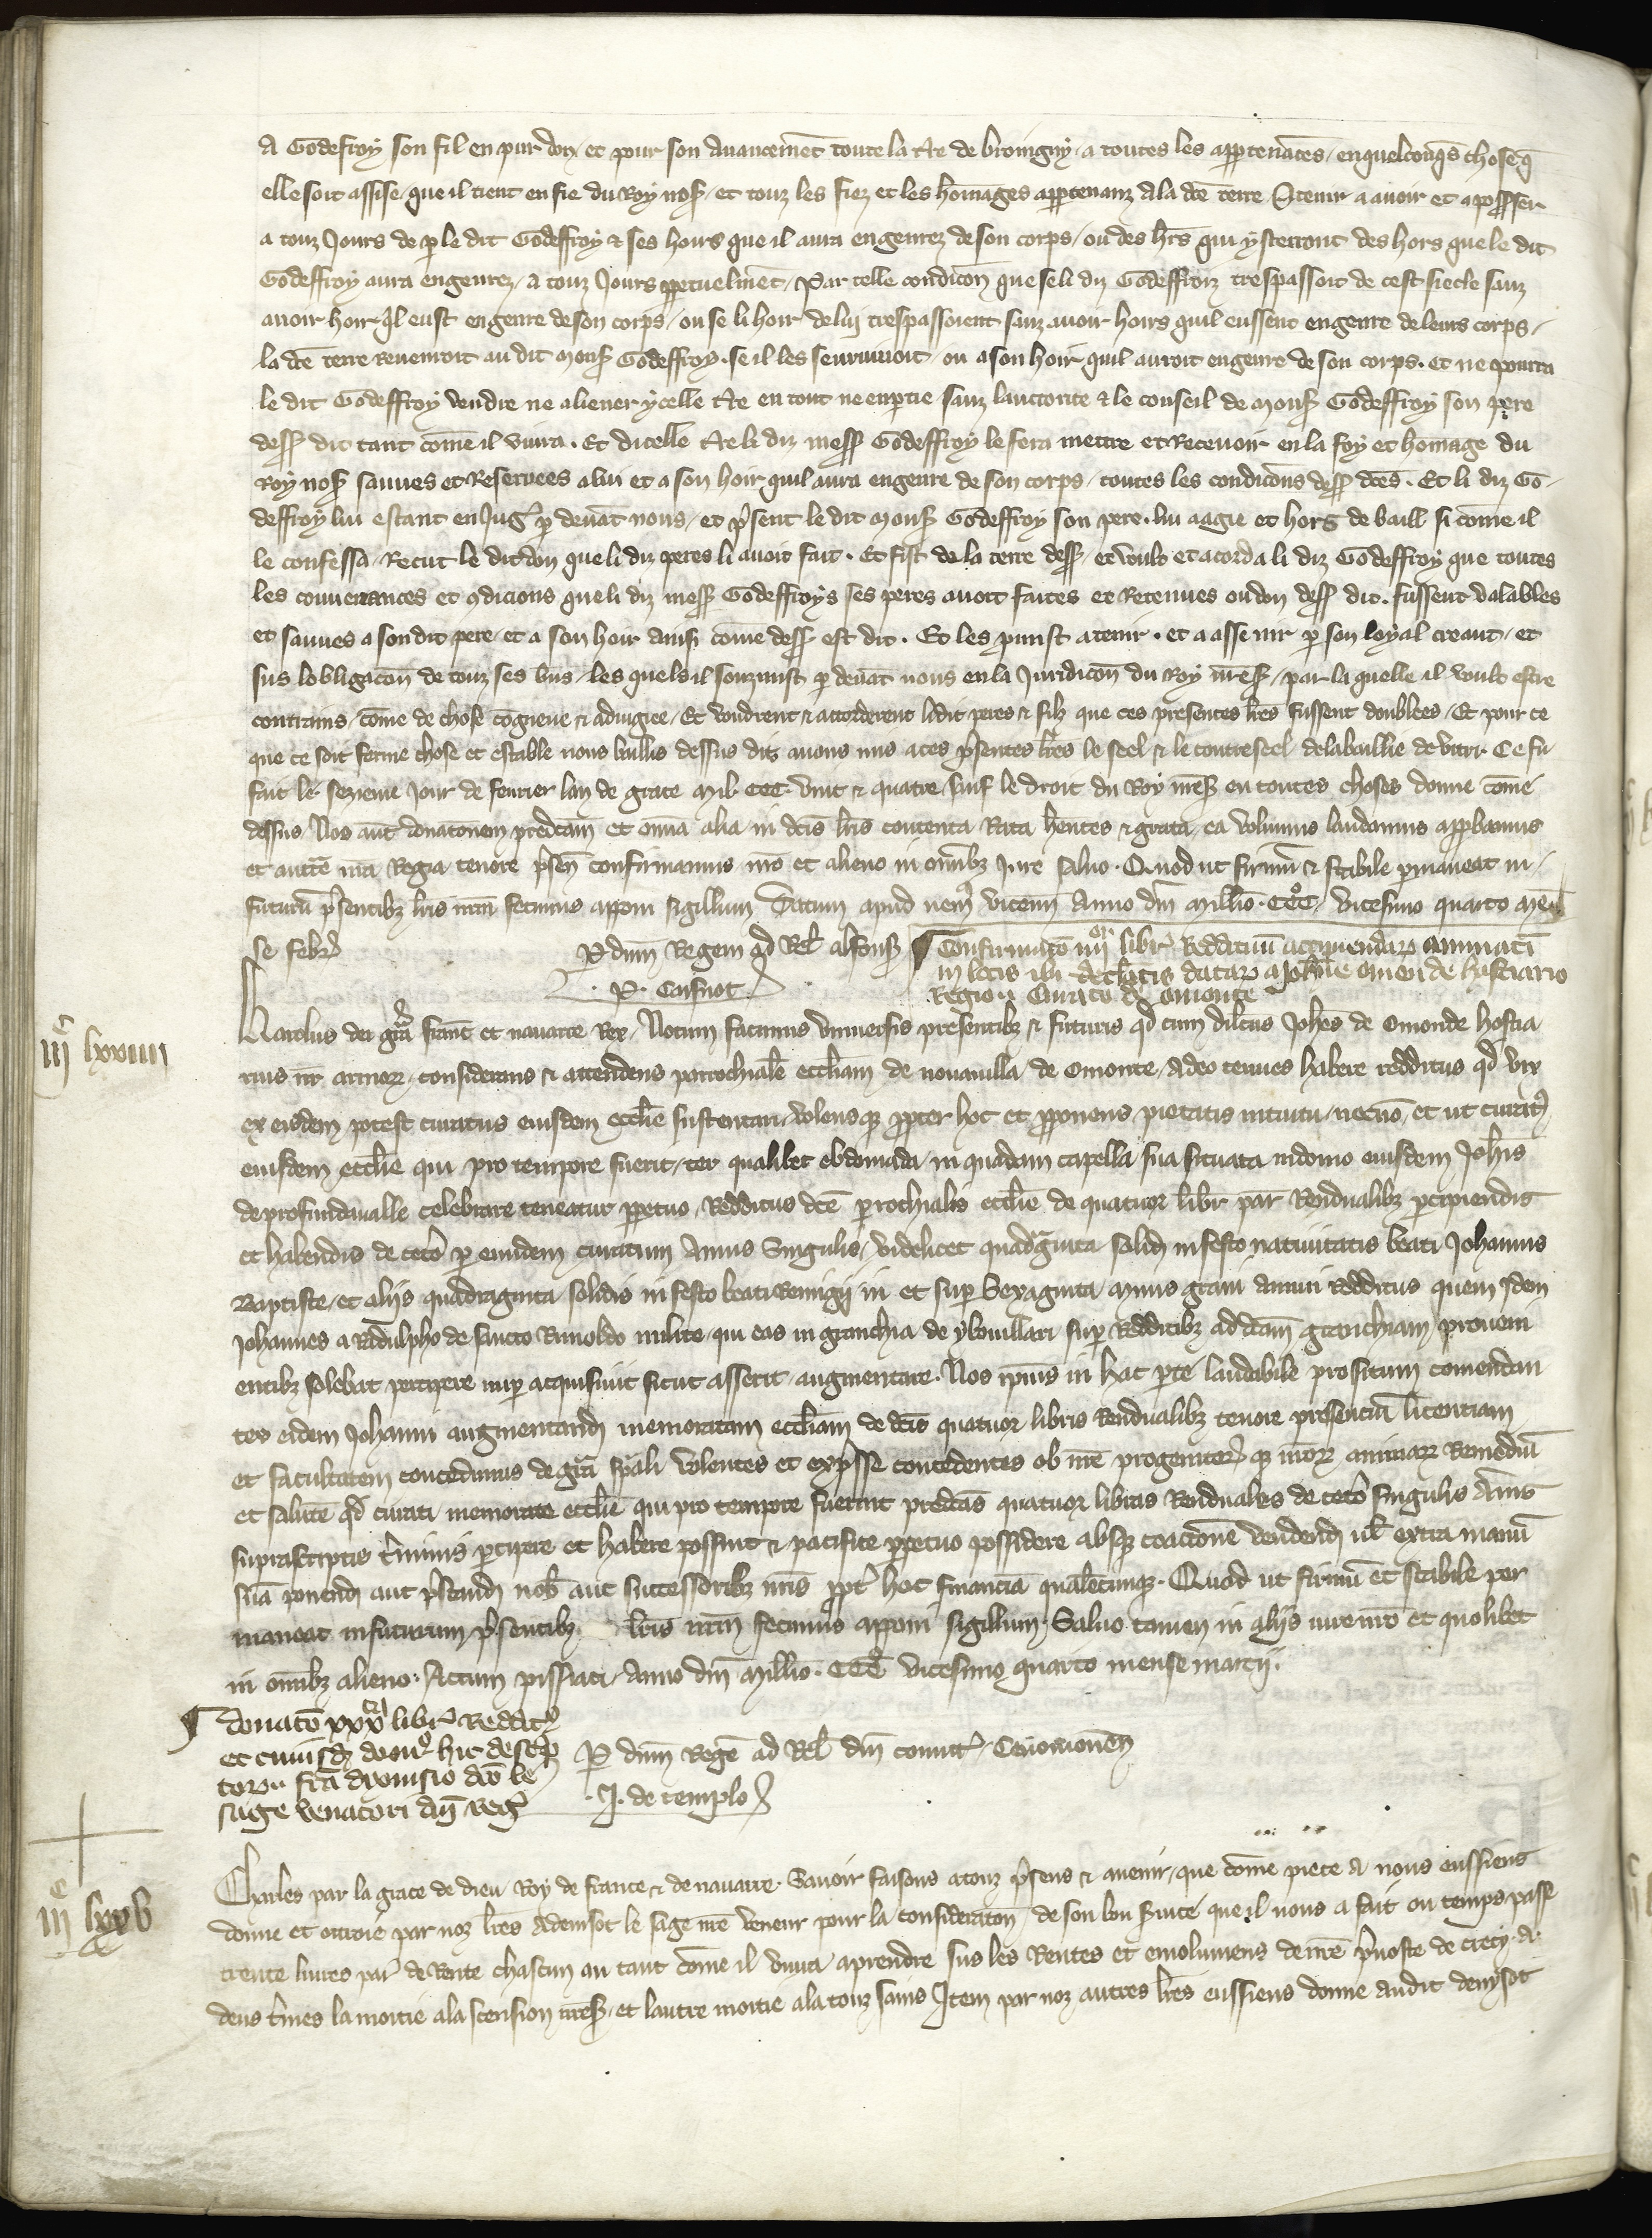 a Godefroy son fil en pur don, et pour son avancemēt toute la t̄re de broingny, a toutes les appartenāces, en quelconq̄s chose q̄
elle soit assise, que il tient en fie du Roy nos̄, et touz les fiez et les hōmages appartenanz a la dc̄e terre a tenir a avoir et a posser
a touz Jours de p̱ le dit Godeffroy & ses hoirs que il aura engenrez de son corps, ou des hr̄s qui ysterront des hors que le dit
Godeffroy aura engenrez, a touz Jours p̱petuelmēt, Par telle condicōn que se li diz Godeffroiz trespassoit de cest siecle sanz
avoir hoir q̇l eust engenre de son corps, ou se li hoir de luy trespassoient sanz avoir hoirs quil eussent engenre de leurs corps,
la dc̄e terre revenroit au dit mons̄ Godeffroy, se il les seurvivoit, ou a son hoir quil auroit engenre de son corps. et ne pourra
le dit Godeffroy vendre ne aliener ycelle t̄re en tout ne en p̱tie sanz lauctorite & le conseil de mons̄ Godeffroy son pere
dess̄ dit tant cōme il vivra. Et dicelle t̄re li diz mess̄ Godeffroy le fera mettre et Recevoir en la foy et hōmage du
Roy nos̄ sauves et Reservees a lui et a son hoir quil aura engenre de son corps, toutes les condicōns dess̄ dc̄es. Et li diz Go-
deffroy lui estant en Juḡ p̱ devāt nous, et p̄sent le dit mons̄ Godeffroy son pere, lui aagie et hors de baill si cōme il
le confessa, Recut le dit don que li diz peres li avoit fait. Et fist de la terre dess̄, et voult et acorda li diz Godeffroy que toutes
les convenances et ɔdicions que li diz mess̄ Godeffroys ses peres avoit faites et Retenues ou don dess̄ dit, fussent valables
et sauves a son dit pere, et a son hoir ainsi cōme dess̄ est dit. Et les p̱mist a tenir, et a assevir p̱ son loyal creant, et
sus lobligacōn de touz ses biēs, les quels il souzmist p̱ devāt nous en la Juridicōn du Roy nr̄es̄, par la quelle il voult estre
contrains, cōme de chose cōgneue & adiugiee, Et voudrent & accorderent li dit peres & filz que ces presentes lr̄es fussent doublees, Et pour ce
que ce soit ferme chose et estable nous baillis dessus dis avons mis a ces p̄sentes lr̄es le seel & le contreseel de la baillie de vitri. Ce fu
fait le sezieme Jour de fevrier lan de grace mil CCC vint & quatre, sauf le droit du Roy nr̄es̄ en toutes choses donne cōme
dessus, Nos aut̄ donationem predc̄am et om̄ia alia in dc̄is lr̄is contenta Rata hēntes & grata, ea volumus laudamus app̱bamus
et auctē nr̄a Regia tenore p̄sen̄ confirmamus nr̄o et alieno in om̄ibꝫ Jure salvo. Quod ut firmū & stabile p̱maneat in
futurū p̄sentibꝫ lr̄is nr̄m fecimus apponi sigillum Datum apud nem̄ vicenn̄ Anno dn̄i millio. CCC. vicesimo quarto men
se febr̄ P̱ dn̄m Regem ad Rel̄ alfons̄
P. Caisnot
¶ Confirmatō iiijor libr̄ Reddituū accipiendar̄ annuati
in locis ibi declaratis datar̄ a Johāne omen de hostiario
Regio, Curato de omonte
iijc lxxiiii
Karolus dei gr̄a franc̄ et navarre Rex, Notum facimus universis presentibꝫ & futuris qd̄ cum dilc̄us Joh̄es de Omonde hostia
rius nr̄ armor̄, considerans & attendens parrochialē eccl̄iam de novavilla de Omonte, Adeo tenues habere redditus qd̄ vix
ex eisdem potest curatus eiusdem eccl̄ie sustentari, volensqꝫ p̱pter hoc et p̱ponens, pietatis intuitu, necnō, et ut curatꝰ
eiusdem eccl̄ie qui pro tempore fuerit, ter qualibet ebdomada, in quadam capella sua situata in domo eiusdem Joh̄is
de profundavalle celebrare teneatur p̱petuo, Redditus dc̄e p̱rochialis eccl̄ie de quatuor libr̄ par̄ Rendualibꝫ p̱cipiendis
et habendis de cetō p̱ eundem curatum Annis Singulis, videlicet quadraginta solid̄ in festo nativitatis beati Johannis
Baptiste, et aliis quadraginta solidis in festo beati Remigij in et sup̱ Sexaginta minis grani annui Redditus quem Idem
Johannes a Radulpho de sancto Runoldo milite, qui eas in granchia de ybouillari sup̱ Redditibꝫ ad dc̄am granchiam proveni
entibꝫ solebat percipere nup̱ acquisivit sicut asserit, augmentare. Nos ip̄ius in hac p̱te laudabile propositum comendan
tes eidem Johanni augmentand̄ memoratam eccl̄iam de dc̄is quatuor libris Rendualibꝫ tenore presenciū licentiam
et facultatem concedimus de gr̄a sp̄ali volentes et exp̄sse concedentes ob nr̄e progenitor̄ qꝫ nr̄or̄ animar̄ Remediū
et salutē qd̄ curati memorate eccl̄ie qui pro tempore fuerint predc̄as quatuor libras Renduales de cetō singulis Annis
suprascriptis t̄minis p̱cipere et habere possint & pacifice p̱petuo possidere absqꝫ coactionē vendend̄ ul̄ extra manū
suā ponend̄ aut p̄stand̄ nob̄ aut successoribꝫ nr̄is p̱pt̄ hoc financiā qualēcunqꝫ. Quod ut firmū et stabile per
maneat in futurum p̄sentibꝫ lr̄is nr̄m fecimus apponi sigillum. Salvo tamen in aliis iure nr̄o et quolibet
in om̄ibꝫ alieno. Actum pissiaci, Anno dn̄i millio. CCC vicesimo quarto mense marcij.
P̱ dn̄m Regē ad Rel̄ dn̄i comit̄ Cenomanen̄
J. de templo
¶ donatō xxxta libr̄ Reddit̄
et cuiusdꝫ domꝰ hic descrip
tor̄ fc̄a dyonisio dc̄o le
sage venatori dn̄i Reḡ
iijc lxxv
Charles par la grace de dieu Roy de france & de navarre. Savoir faisons a touz p̄sens & avenir, que cōme piece a nous eussiens
donne et ottroie par noz lr̄es A denisot le sage nr̄e veneur pour la consideracōn de son bon service que il nous a fait ou temps passe
trente livres par̄ de Rente chascun an tant cōme il vivra a prendre sus les Rentes et emolumens de nr̄e p̄voste de crecy. A.
deus t̄mes la moitie a lascension nr̄es̄, et lautre moitie a la touz sains Item par noz autres lr̄es eussiens donne audit denysot